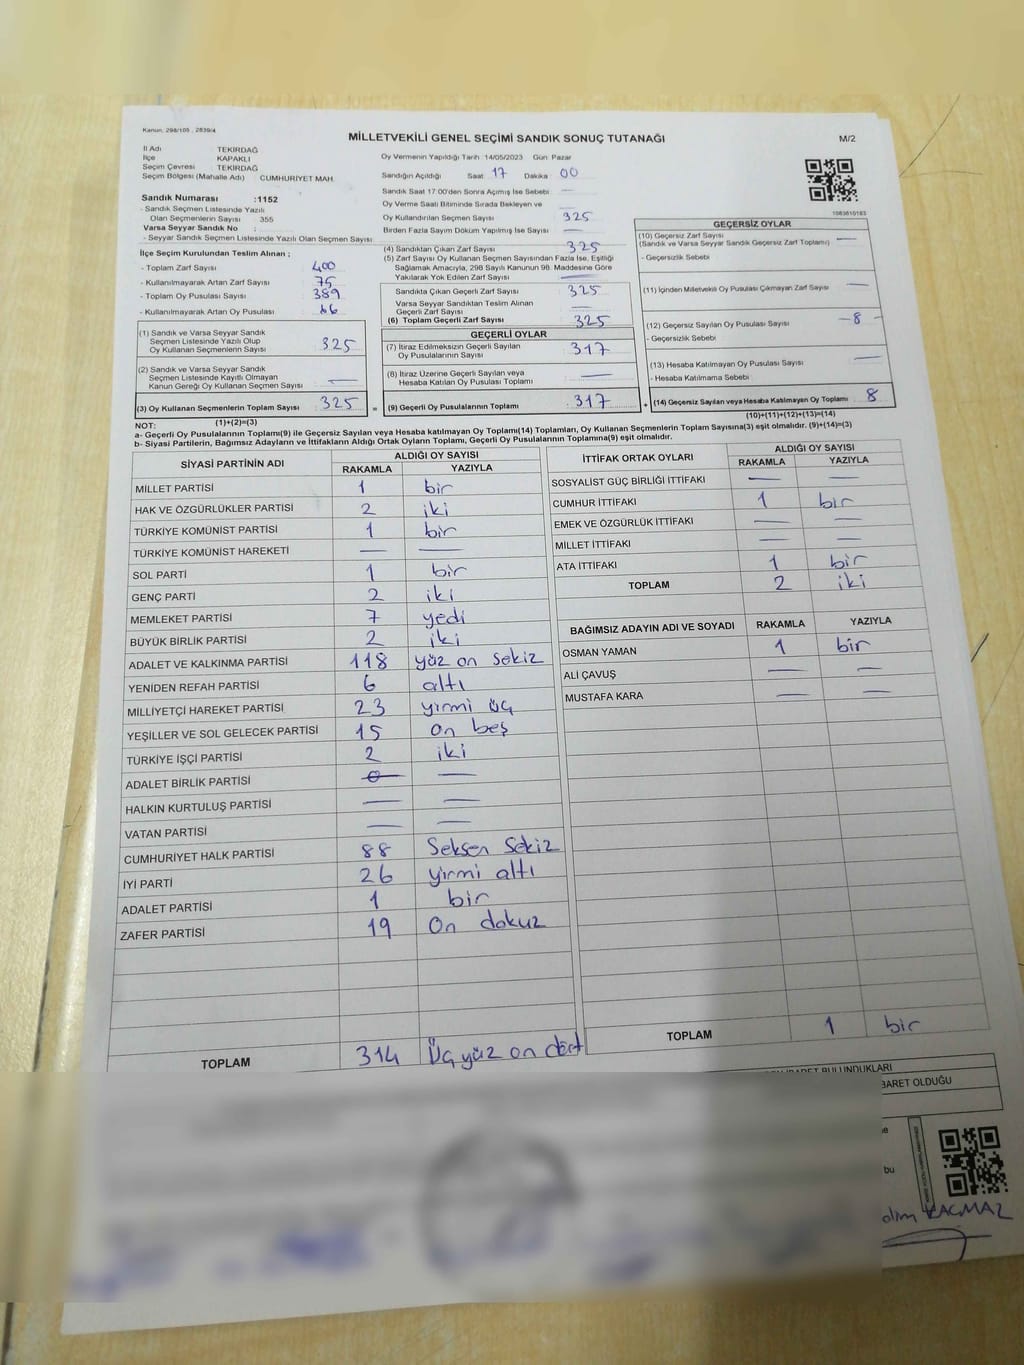 Kanun, 298/105 , 2839/4
MİLLETVEKİLİ GENEL SEÇİMİ SANDIK SONUÇ TUTANAĞI
M/2
İl Adı TEKİRDAĞ
İlçe KAPAKLI
Seçim Çevresi TEKİRDAĞ
Seçim Bölgesi (Mahalle Adı) CUMHURİYET MAH.
Oy Vermenin Yapıldığı Tarih 14/05/2023 Gün Pazar
Sandığın Açıldığı Saat 17 Dakika 00
Sandık Saat 17:00'den Sonra Açımış İse Sebebi —
Oy Verme Saati Bitiminde Sırada Bekleyen ve
Oy Kullandırılan Seçmen Sayısı 325
Birden Fazla Sayım Döküm Yapılmış İse Sayısı —
Sandık Numarası :1152
- Sandık Seçmen Listesinde Yazılı
Olan Seçmenlerin Sayısı 355
Varsa Seyyar Sandık No :
- Seyyar Sandık Seçmen Listesinde Yazılı Olan Seçmen Sayısı
İlçe Seçim Kurulundan Teslim Alınan ;
- Toplam Zarf Sayısı 400
- Kullanılmayarak Artan Zarf Sayısı 75
- Toplam Oy Pusulası Sayısı 389
- Kullanılmayarak Artan Oy Pusulası 66
(1) Sandık ve Varsa Seyyar Sandık
Seçmen Listesinde Yazılı Olup
Oy Kullanan Seçmenlerin Sayısı 325
(2) Sandık ve Varsa Seyyar Sandık
Seçmen Listesinde Kayıtlı Olmayan
Kanun Gereği Oy Kullanan Seçmen Sayısı —
(3) Oy Kullanan Seçmenlerin Toplam Sayısı 325 =
(1)+(2)=(3)
(4) Sandıktan Çıkan Zarf Sayısı 325
(5) Zarf Sayısı Oy Kullanan Seçmen Sayısından Fazla İse, Eşitliği
Sağlamak Amacıyla, 298 Sayılı Kanunun 98. Maddesine Göre
Yakılarak Yok Edilen Zarf Sayısı —
Sandıkta Çıkan Geçerli Zarf Sayısı 325
Varsa Seyyar Sandıktan Teslim Alınan
Geçerli Zarf Sayısı —
(6) Toplam Geçerli Zarf Sayısı 325
GEÇERLİ OYLAR
(7) İtiraz Edilmeksizin Geçerli Sayılan
Oy Pusulalarının Sayısı 317
(8) İtiraz Üzerine Geçerli Sayılan veya
Hesaba Katılan Oy Pusulası Toplamı —
(9) Geçerli Oy Pusulalarının Toplamı 317 +
1083610183
GEÇERSİZ OYLAR
(10) Geçersiz Zarf Sayısı
(Sandık ve Varsa Seyyar Sandık Geçersiz Zarf Toplamı) —
- Geçersizlik Sebebi
(11) İçinden Milletvekili Oy Pusulası Çıkmayan Zarf Sayısı —
(12) Geçersiz Sayılan Oy Pusulası Sayısı —8—
- Geçersizlik Sebebi
(13) Hesaba Katılmayan Oy Pusulası Sayısı —
- Hesaba Katılmama Sebebi
(14) Geçersiz Sayılan veya Hesaba Katılmayan Oy Toplamı 8
(10)+(11)+(12)+(13)=(14)
NOT:
a- Geçerli Oy Pusulalarının Toplamı(9) ile Geçersiz Sayılan veya Hesaba katılmayan Oy Toplamı(14) Toplamları, Oy Kullanan Seçmenlerin Toplam Sayısına(3) eşit olmalıdır. (9)+(14)=(3)
b- Siyasi Partilerin, Bağımsız Adayların ve İttifakların Aldığı Ortak Oyların Toplamı, Geçerli Oy Pusulalarının Toplamına(9) eşit olmalıdır.
SİYASİ PARTİNİN ADI ALDIĞI OY SAYISI
RAKAMLA YAZIYLA
MİLLET PARTİSİ 1 bir
HAK VE ÖZGÜRLÜKLER PARTİSİ 2 iki
TÜRKİYE KOMÜNİST PARTİSİ 1 bir
TÜRKİYE KOMÜNİST HAREKETİ — —
SOL PARTİ 1 bir
GENÇ PARTİ 2 iki
MEMLEKET PARTİSİ 7 yedi
BÜYÜK BİRLİK PARTİSİ 2 iki
ADALET VE KALKINMA PARTİSİ 118 yüz on sekiz
YENİDEN REFAH PARTİSİ 6 altı
MİLLİYETÇİ HAREKET PARTİSİ 23 yirmi üç
YEŞİLLER VE SOL GELECEK PARTİSİ 15 on beş
TÜRKİYE İŞÇİ PARTİSİ 2 iki
ADALET BİRLİK PARTİSİ — —
HALKIN KURTULUŞ PARTİSİ — —
VATAN PARTİSİ — —
CUMHURİYET HALK PARTİSİ 88 Seksen Sekiz
İYİ PARTİ 26 yirmi altı
ADALET PARTİSİ 1 bir
ZAFER PARTİSİ 19 On dokuz
TOPLAM 314 Üç yüz on dört
İTTİFAK ORTAK OYLARI ALDIĞI OY SAYISI
RAKAMLA YAZIYLA
SOSYALİST GÜÇ BİRLİĞİ İTTİFAKI — —
CUMHUR İTTİFAKI 1 bir
EMEK VE ÖZGÜRLÜK İTTİFAKI — —
MİLLET İTTİFAKI — —
ATA İTTİFAKI 1 bir
TOPLAM 2 iki
BAĞIMSIZ ADAYIN ADI VE SOYADI RAKAMLA YAZIYLA
OSMAN YAMAN 1 bir
ALİ ÇAVUŞ — —
MUSTAFA KARA — —
TOPLAM 1 bir
BULUNDUKLARI
BARET OLDUĞU
bu
KAÇMAZ